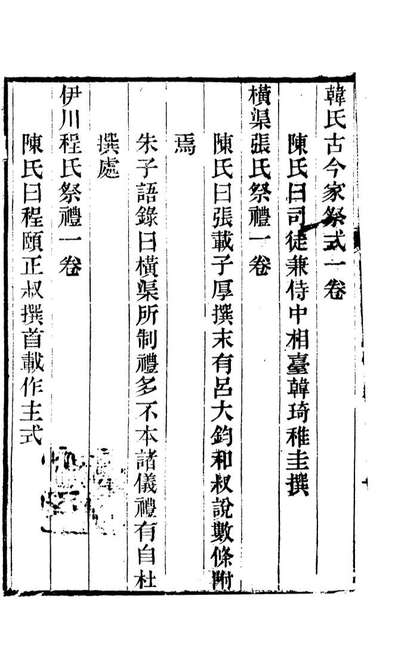 韓氏古今家祭式一卷
陳氏曰司徒兼侍中相臺韓琦稚圭撰
橫渠張氏祭禮一卷
陳氏曰張載子厚撰末有呂大鈞和叔說數條附
焉
朱子語錄曰橫渠所制禮多不本諸儀禮有自杜
撰處
伊川程氏祭禮一卷
陳氏曰程頤正叔撰首載作主式